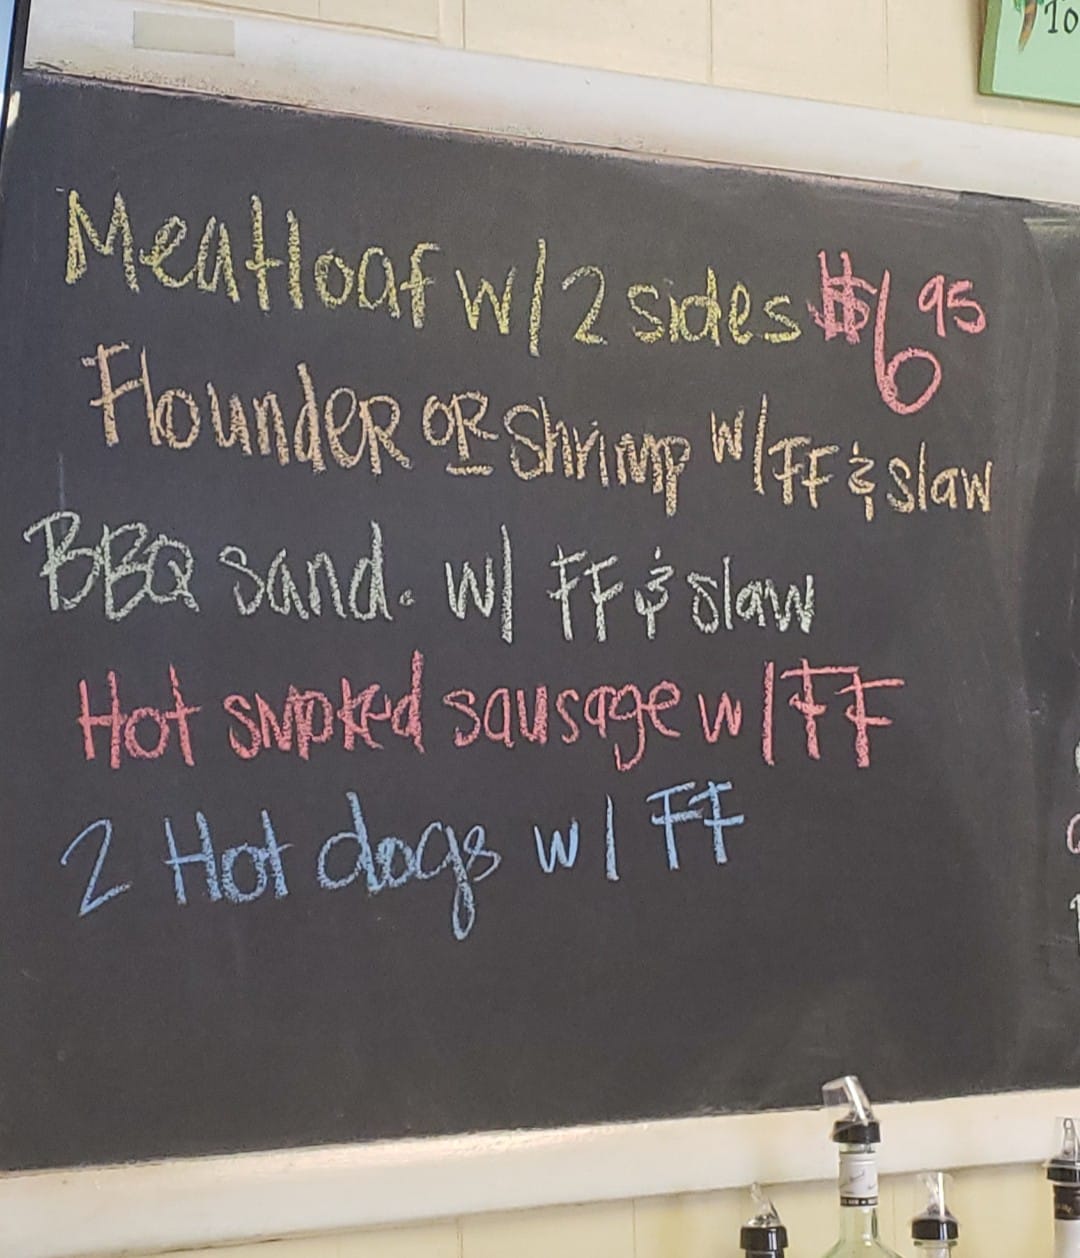 To
Meatloaf w/ 2 sides $6 95
Flounder OR Shrimp w/ FF & slaw
BBQ sand. w/ FF & slaw
Hot smoked sausage w/ FF
2 Hot dogs w/ FF